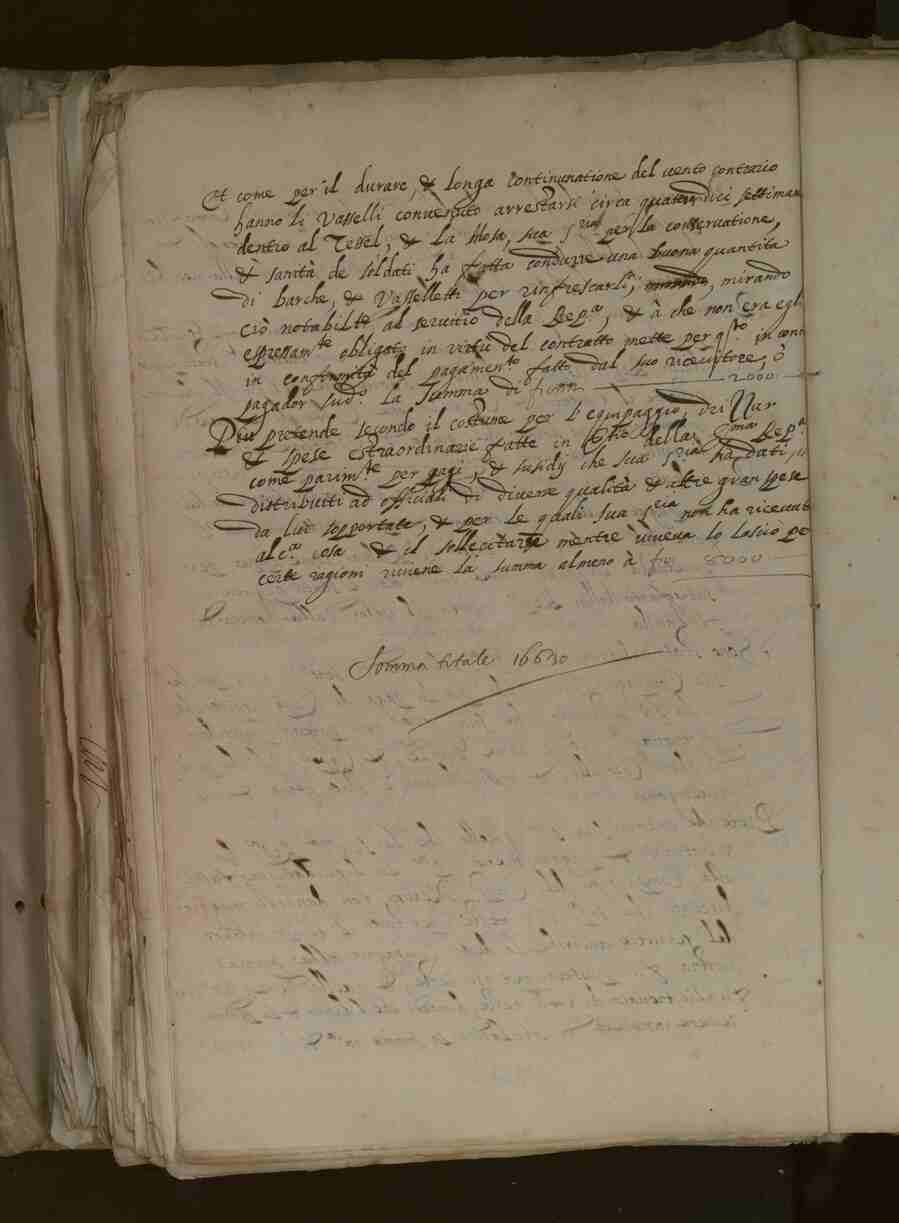 Et come per il durare, & longa continuatione del uento contrario
hanno li Vasselli conuenuto arrestarsi circa quatordici settiman
dentro al Tessel, & la Mosa, sua S.ria per la conseruatione,
& sanità de soldati ha fatta condurre una buona quantita
di barche, & Vasselletti per rinfrescarli, mirando
ciò notabilte al seruitio della Rep.ca, & à che non era egli
espressam.te obligato in virtù del contratto mette per q.sto in cont
in conformità del pagamen.to fatto dal suo riceuitore, ò
pagador sud.o la summa di fiorin 2000
Piu pretende secondo il costume per l'equipaggio, dei
& spese estraordinarie fatte in della Rep.ca
come parim.te per gagi, & susidij che sua S.ria ha dati,
distribuiti ad officiali di diuerse qualità & altre gran spese
da lui sopportate, & per le quali sua S.ria non ha riceuut
alc.a cosa & il sollecitar mentre viueua lo lasciò pe
certe ragioni viene la summa almeno à 8000
Somma totale 16630